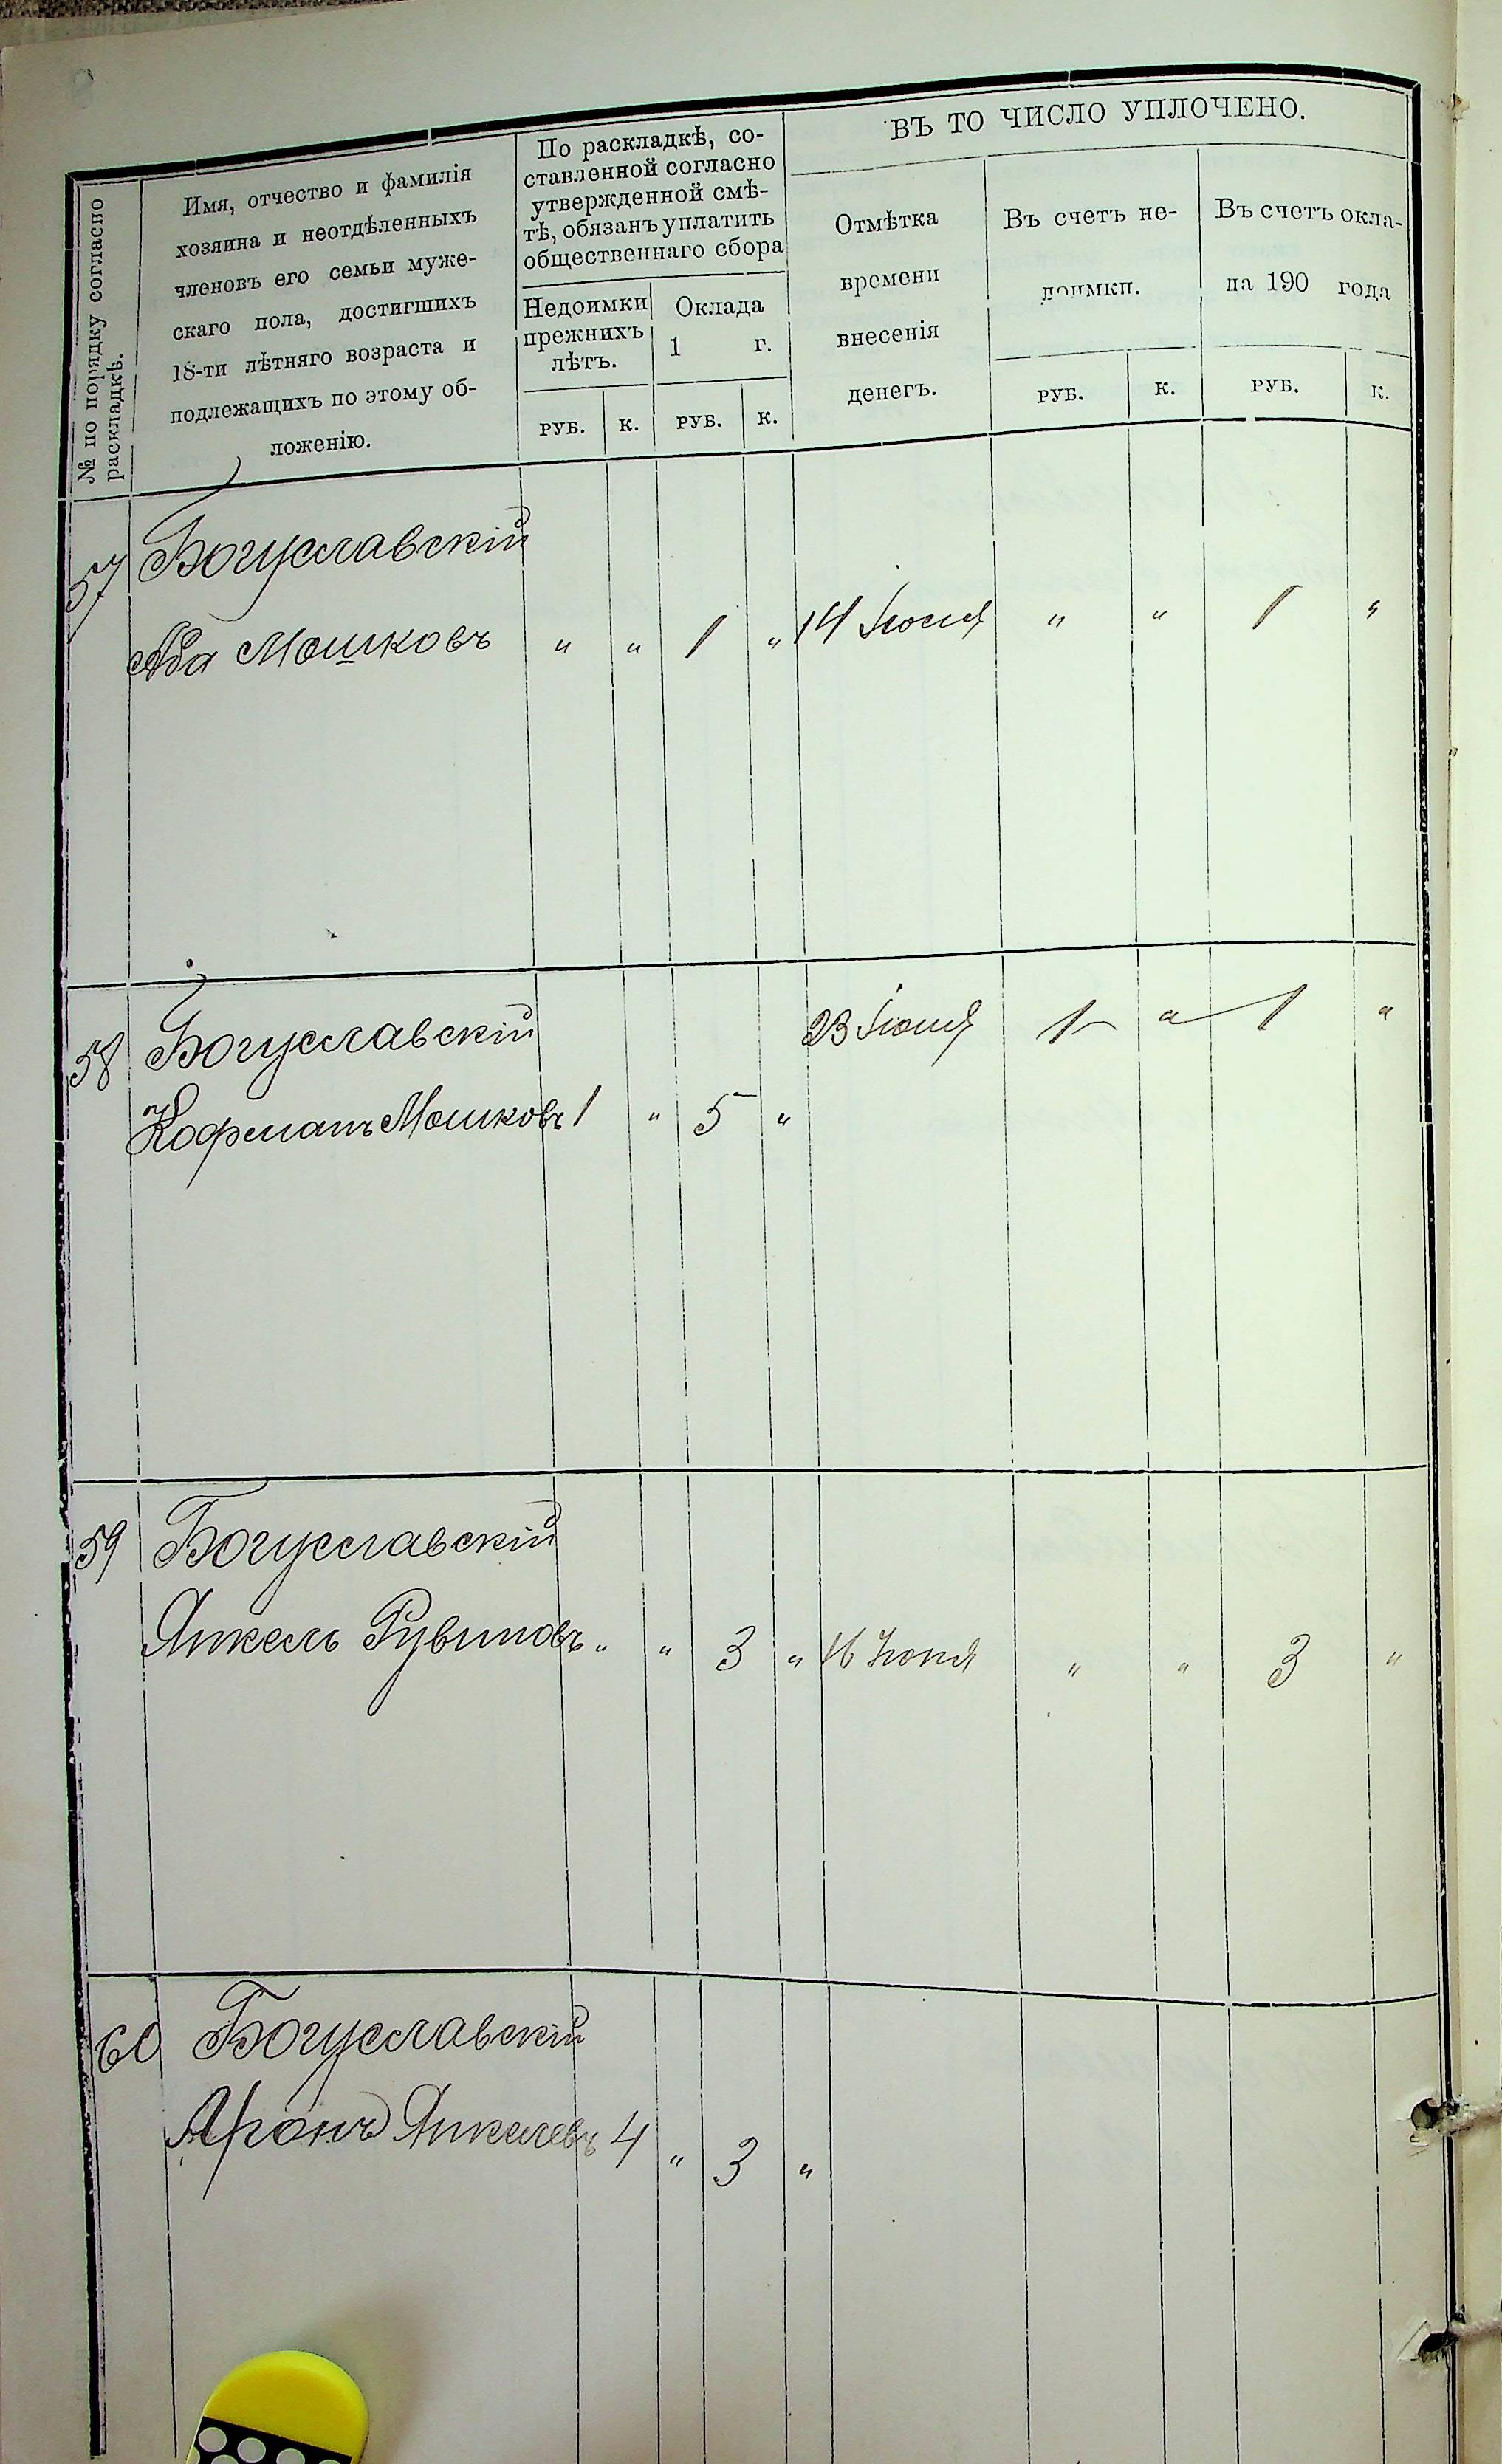 ВЪ ТО ЧИСЛО УПЛОЧЕНО.
№ по порядку согласно
раскладкѣ.
Имя, отчество и фамилія
хозяина и неотдѣленныхъ
членовъ его семьи муже-
скаго пола, достигшихъ
18-ти лѣтняго возраста и
подлежащихъ по этому об-
ложенію.
По раскладкѣ, со-
ставленной согласно
утвержденной смѣ-
тѣ, обязанъ уплатить
общественнаго сбора
Недоимки
прежнихъ
лѣтъ.
Оклада
1 г.
Отмѣтка
времени
внесенія
денегъ.
Въ счетъ не-
доимки.
Въ счетъ окла-
да 190 года
РУБ. К. РУБ. К. РУБ. К. РУБ. К.
57 Богуславскій
Аба Мошковъ " " 1 " 14 Іюня " " 1 "
58 Богуславскій 23 Іюня 1 " 1 "
Кофманъ Мошковъ 1 " 5 "
59 Богуславскій
Янкель Рувиновъ " " 3 " 16 Іюня " " 3 "
60 Богуславскій
Аронъ Янкелевъ 4 " 3 "